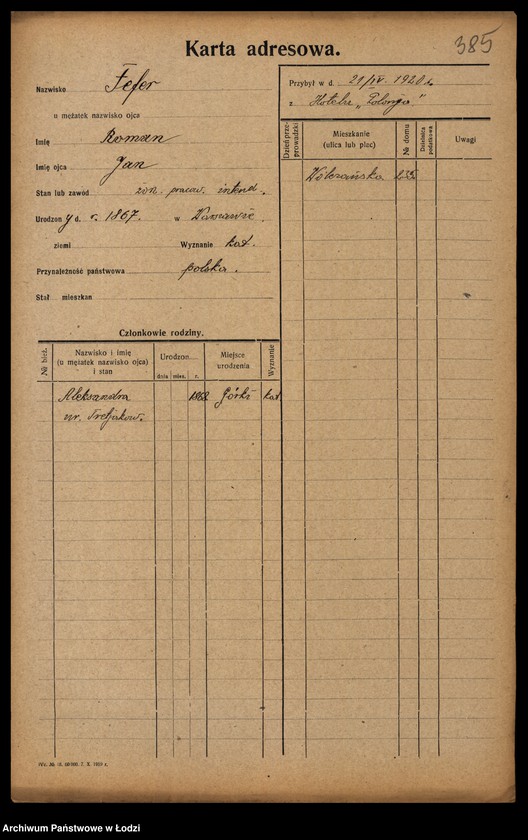 385
Karta adresowa.
Nazwisko Fefer
u mężatek nazwisko ojca
Imię Roman
Imię ojca Jan
Stan lub zawód żon. pracow. intend.
Urodzony d. r. 1867. w Warszawie
ziemi Wyznanie kat.
Przynależność państwowa polska.
Stał mieszkan
Przybył w d. 21/IV. 1920 r.
z Hotelu „Polonja"
Dzień przeprowadzki Mieszkanie (ulica lub plac) № domu Dzielnica podatkowa Uwagi
Wólczańska
Członkowie rodziny.
№ bież. Nazwisko i imię (u mężatek nazwisko ojca) i stan Urodzon dnia mies. r. Miejsce urodzenia Wyznanie
Aleksandra 1868 Górki kat
ur. Tretjakow.
Archiwum Państwowe w Łodzi